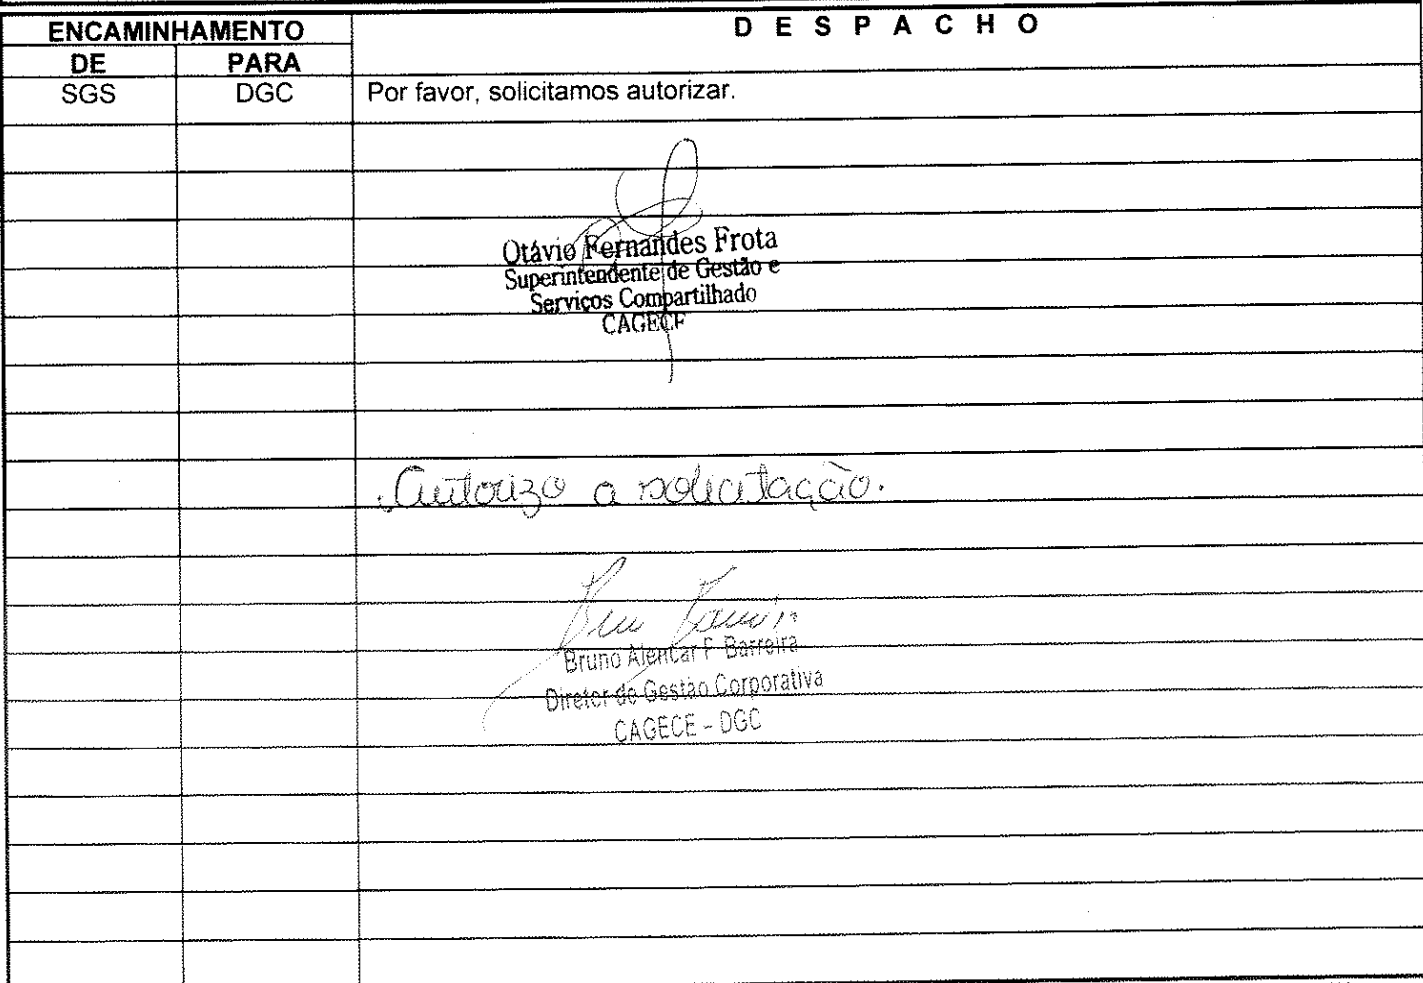 ENCAMINHAMENTO
D E S P A C H O
DE PARA
SGS DGC Por favor, solicitamos autorizar.
Otávio Fernandes Frota
Superintendente de Gestão e
Serviços Compartilhado
CAGECE
Autorizo a solicitação.
Bruno Alencar F Barreira
Diretor de Gestão Corporativa
CAGECE - DGC